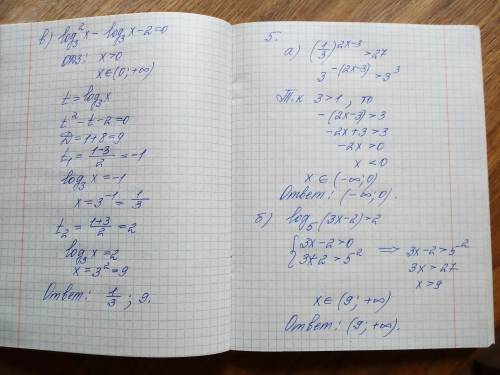 в) log₃²x - log₃x - 2 = 0
ОДЗ: x>0
x∈(0; +∞)
t = log₃x
t² - t - 2 = 0
D = 1+8 = 9
t₁ = (1-3)/2 = -1
log₃x = -1
x = 3⁻¹ = 1/3
t₂ = (1+3)/2 = 2
log₃x = 2
x = 3² = 9
Ответ: 1/3 ; 9.
5.
а) (1/3)^(2x-3) > 27
3^(-(2x-3)) > 3³
Т.к 3>1, то
-(2x-3) > 3
-2x+3 > 3
-2x > 0
x < 0
x ∈ (-∞; 0)
Ответ: (-∞; 0).
б) log₅(3x-2) > 2
{3x-2>0
{3x-2 > 5² => 3x-2 > 5²
3x > 27
x > 9
x∈(9; +∞)
Ответ: (9; +∞).